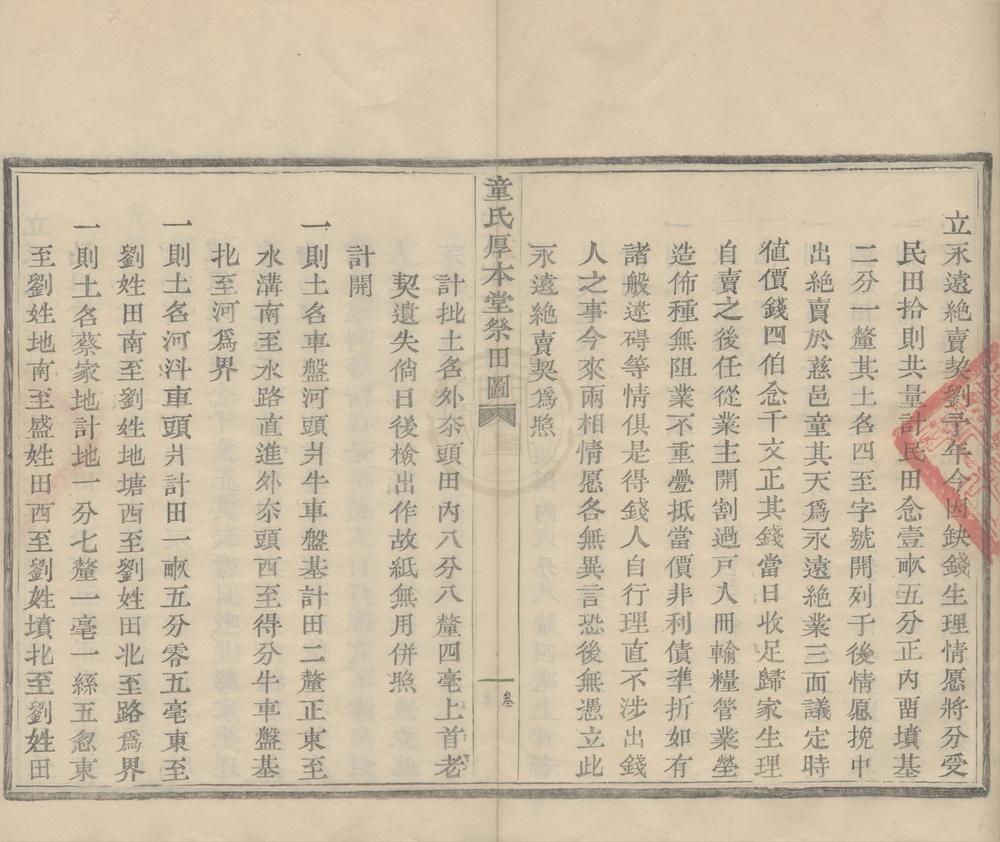 立永遠絶賣契劉寻年今因缺錢生理情愿將分受
民田拾則共量計民田念壹畝五分正內畱墳基
二分一釐其土名四至字號開列于後情愿挽中
出絶賣於慈邑童其天爲永遠絶業三面議定時
値價錢四伯念千文正其錢當日收足歸家生理
自賣之後任從業主開割過戸入冊輸糧管業塋
造佈種無阻業不重疊抵當價非利債準折如有
諸般違碍等情俱是得錢人自行理直不涉出錢
人之事今來兩相情愿各無異言恐後無憑立此
永遠絶賣契爲照
童氏厚本堂祭田圖
叁
計批土名外夵頭田內八分八釐四毫上首老
契遺失倘日後檢出作故紙無用併照
計開
一則土名車盤河頭爿牛車盤基計田二釐正東至
水溝南至水路直進外夵頭西至得分牛車盤基
北至河爲界
一則土名河㪵車頭爿計田一畝五分零五毫東至
劉姓田南至劉姓地塘西至劉姓田北至路爲界
一則土名蔡家地計地一分七釐一毫一絲五忽東
至劉姓地南至盛姓田西至劉姓墳北至劉姓田